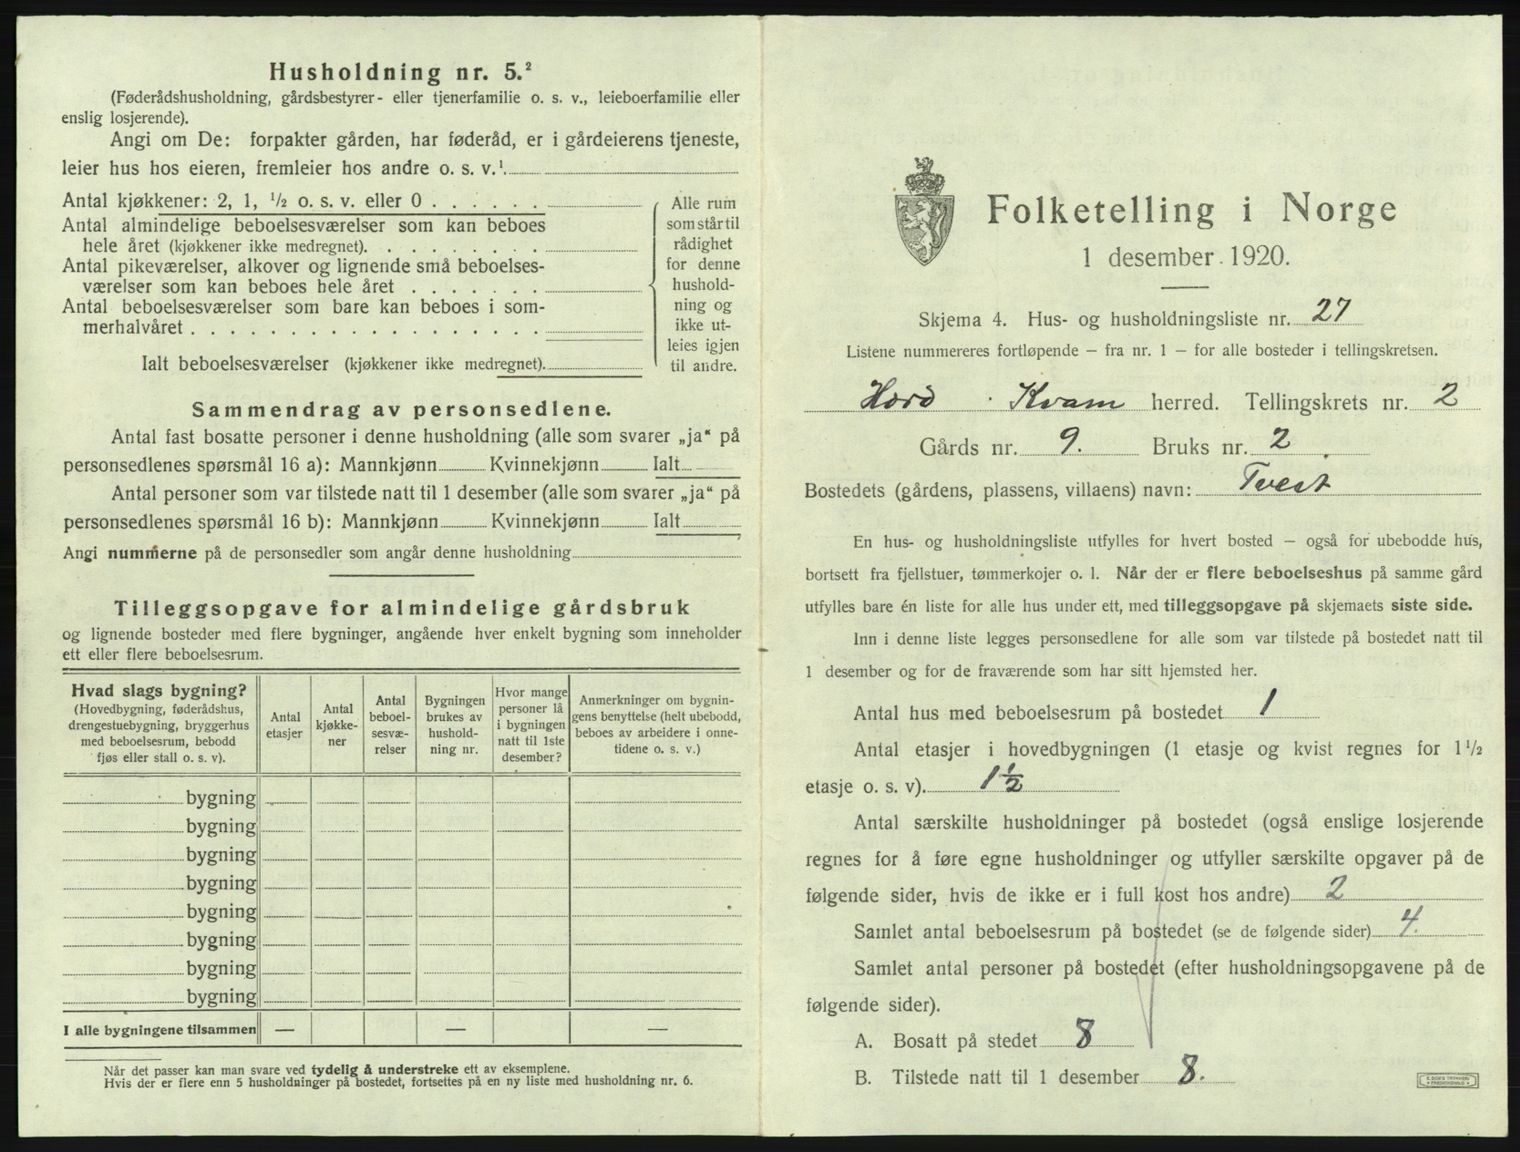 Husholdning nr. 5.²
(Føderådshusholdning, gårdsbestyrer- eller tjenerfamilie o. s. v., leieboerfamilie eller
enslig losjerende).
Angi om De: forpakter gården, har føderåd, er i gårdeierens tjeneste,
leier hus hos eieren, fremleier hos andre o. s. v.¹
Antal kjøkkener: 2, 1, ½ o. s. v. eller 0
Antal almindelige beboelsesværelser som kan beboes
hele året (kjøkkener ikke medregnet).
Antal pikeværelser, alkover og lignende små beboelses-
værelser som kan beboes hele året
Antal beboelsesværelser som bare kan beboes i som-
merhalvåret
Ialt beboelsesværelser (kjøkkener ikke medregnet).
Alle rum
som står til
rådighet
for denne
hushold-
ning og
ikke ut-
leies igjen
til andre.
Sammendrag av personsedlene.
Antal fast bosatte personer i denne husholdning (alle som svarer „ja“ på
personsedlenes spørsmål 16 a): Mannkjønn Kvinnekjønn Ialt
Antal personer som var tilstede natt til 1 desember (alle som svarer „ja“ på
personsedlenes spørsmål 16 b): Mannkjønn Kvinnekjønn Ialt
Angi nummerne på de personsedler som angår denne husholdning
Tilleggsopgave for almindelige gårdsbruk
og lignende bosteder med flere bygninger, angående hver enkelt bygning som inneholder
ett eller flere beboelsesrum.
Hvad slags bygning?
(Hovedbygning, føderådshus,
drengestuebygning, bryggerhus
med beboelsesrum, bebodd
fjøs eller stall o. s. v).
Antal
etasjer
Antal
kjøkke-
ner
Antal
beboel-
sesvæ-
relser
Bygningen
brukes av
hushold-
ning nr.
Hvor mange
personer lå
i bygningen
natt til 1ste
desember?
Anmerkninger om bygnin-
gens benyttelse (helt ubebodd,
beboes av arbeidere i onne-
tidene o. s. v.)
bygning
bygning
bygning
bygning
bygning
bygning
bygning
bygning
I alle bygningene tilsammen — — —
Når det passer kan man svare ved tydelig å understreke ett av eksemplene.
Hvis der er flere enn 5 husholdninger på bostedet, fortsettes på en ny liste med husholdning nr. 6.
Folketelling i Norge
1 desember 1920.
Skjema 4. Hus- og husholdningsliste nr. 27
Listene nummereres fortløpende — fra nr. 1 — for alle bosteder i tellingskretsen.
Hord. Kvam herred. Tellingskrets nr. 2
Gårds nr. 9. Bruks nr. 2
Bostedets (gårdens, plassens, villaens) navn: Tveit
En hus- og husholdningsliste utfylles for hvert bosted — også for ubebodde hus,
bortsett fra fjellstuer, tømmerkojer o. l. Når der er flere beboelseshus på samme gård
utfylles bare én liste for alle hus under ett, med tilleggsopgave på skjemaets siste side.
Inn i denne liste legges personsedlene for alle som var tilstede på bostedet natt til
1 desember og for de fraværende som har sitt hjemsted her.
Antal hus med beboelsesrum på bostedet 1
Antal etasjer i hovedbygningen (1 etasje og kvist regnes for 1½
etasje o. s. v). 1½
Antal særskilte husholdninger på bostedet (også enslige losjerende
regnes for å føre egne husholdninger og utfyller særskilte opgaver på de
følgende sider, hvis de ikke er i full kost hos andre) 2
Samlet antal beboelsesrum på bostedet (se de følgende sider) 4.
Samlet antal personer på bostedet (efter husholdningsopgavene på de
følgende sider).
A. Bosatt på stedet 8
B. Tilstede natt til 1 desember 8.